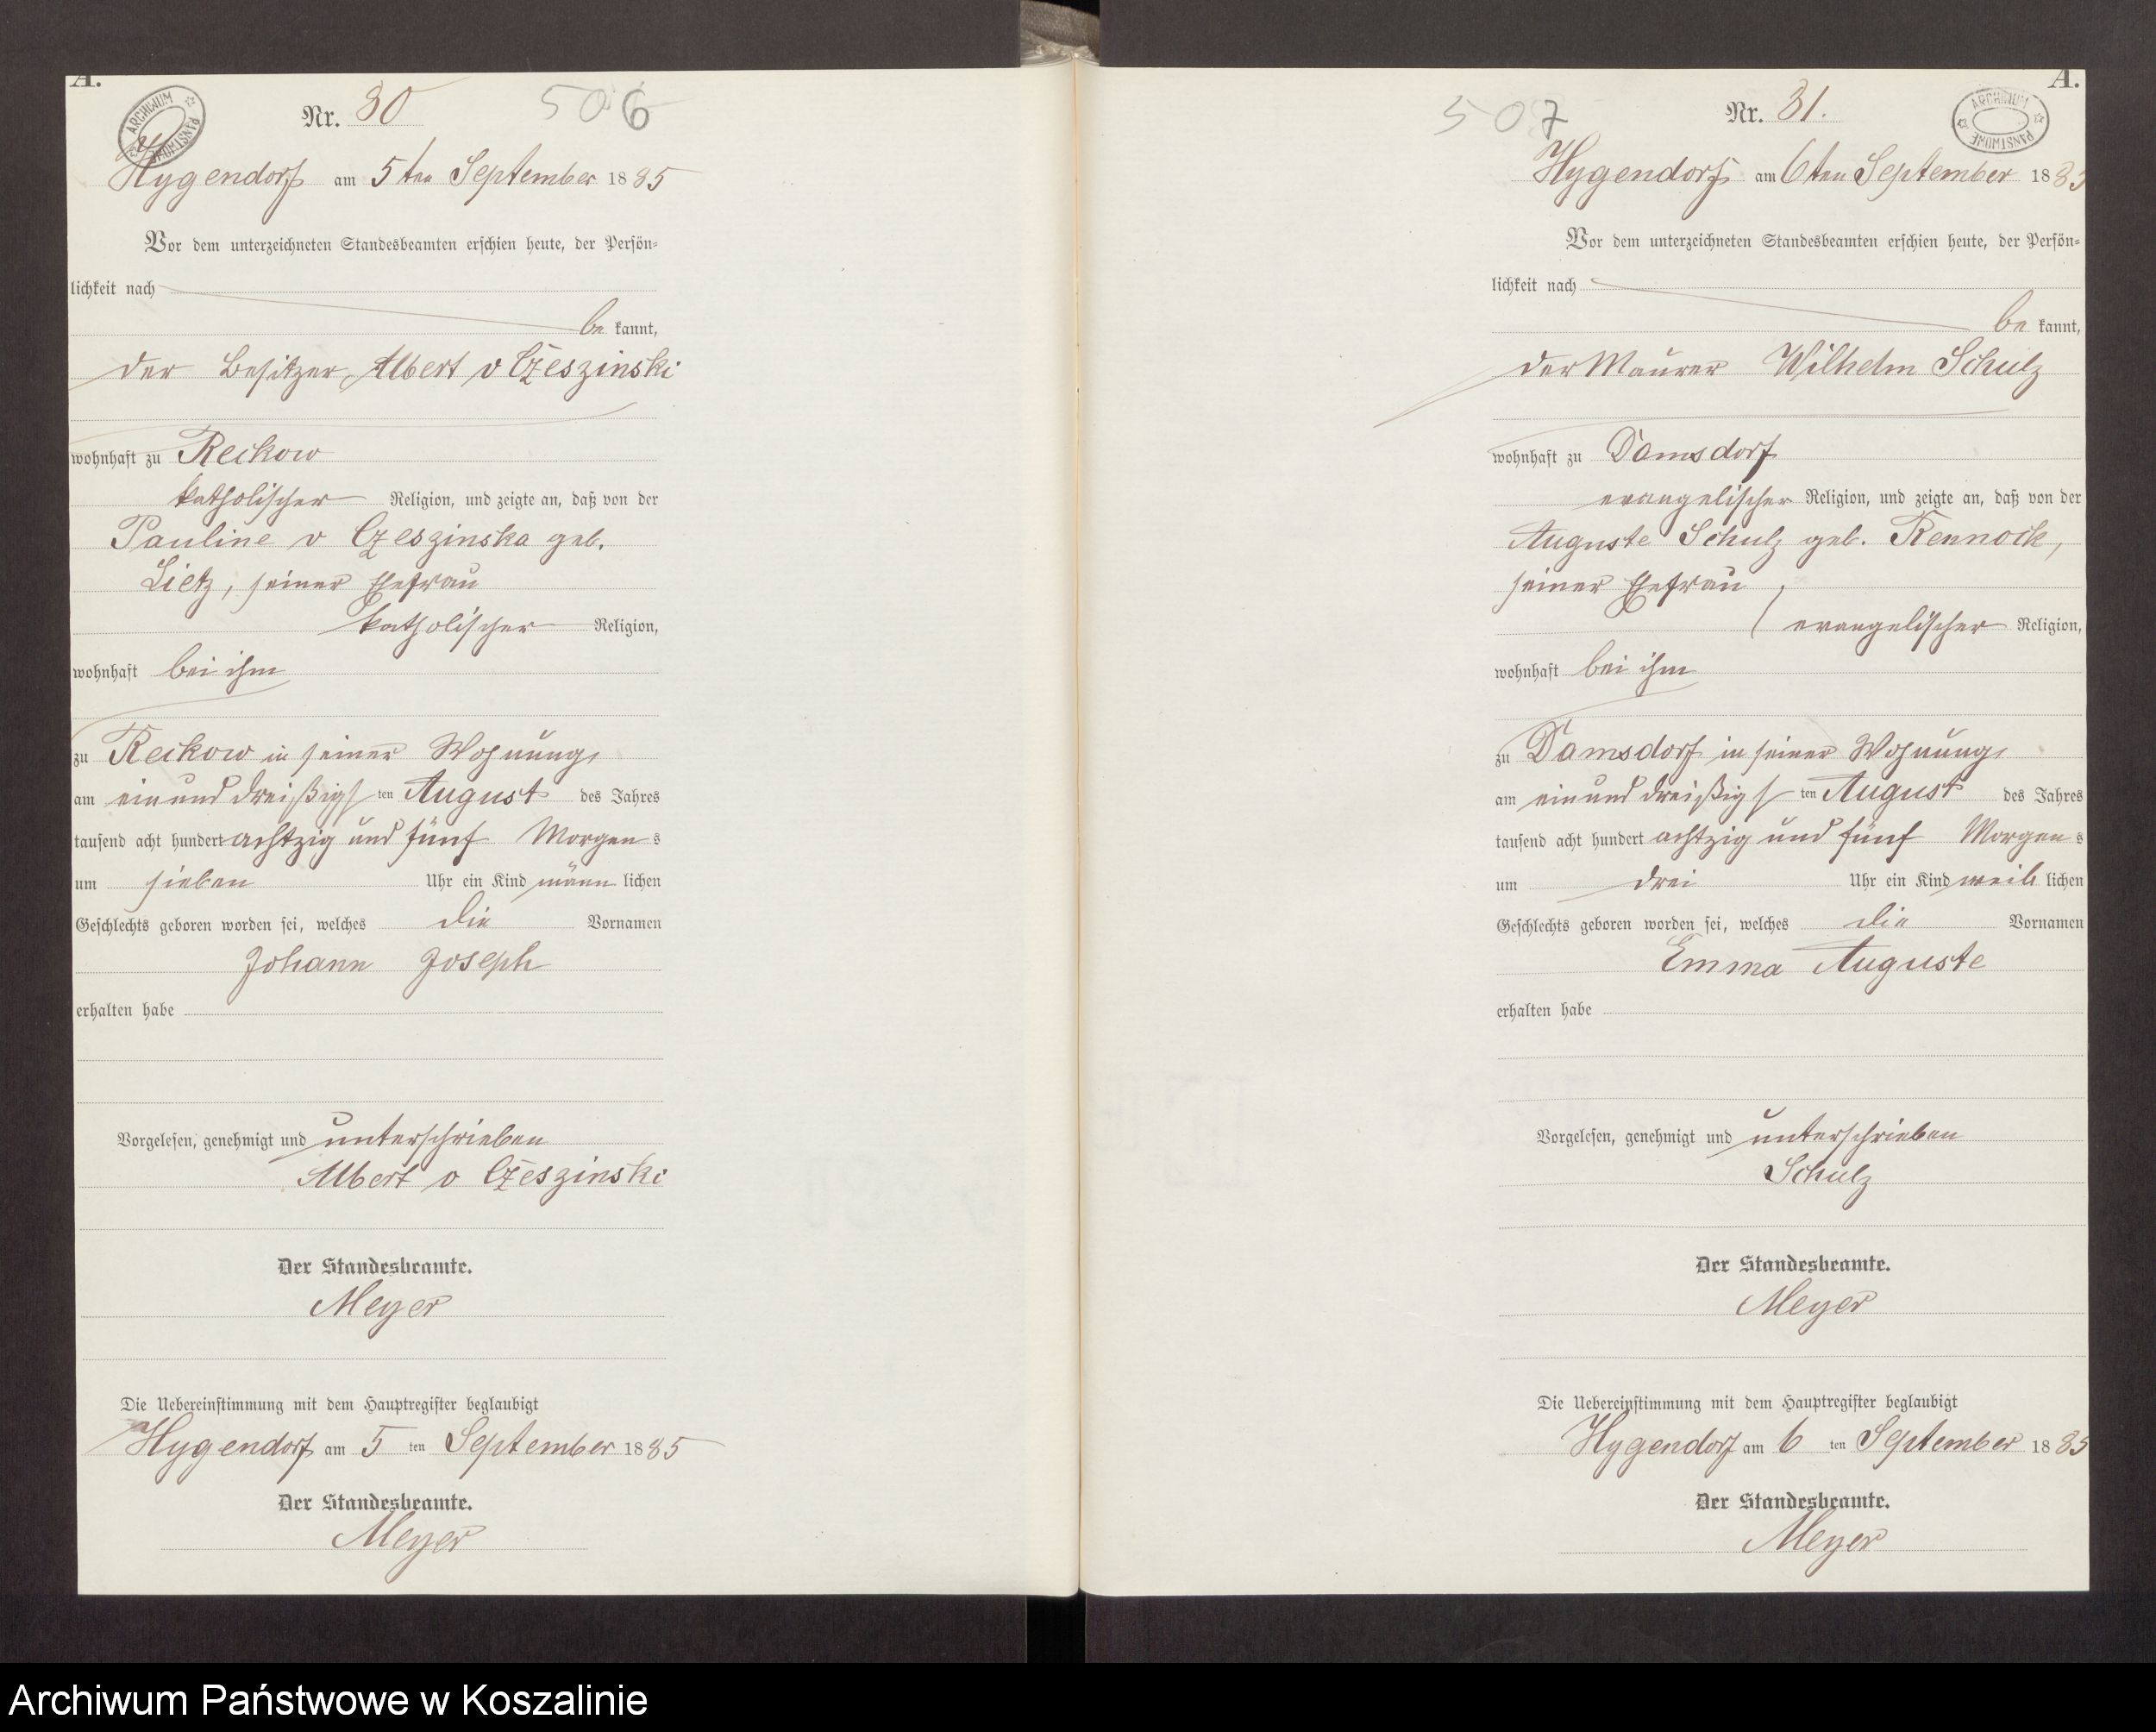 A.
ARCHIWUM PAŃSTWOWE
Nr. 30
506
Hygendorf am 5ten September 1885
Vor dem unterzeichneten Standesbeamten erschien heute, der Persön-
lichkeit nach
be kannt,
der Besitzer Albert v Czeszinski
wohnhaft zu Reckow
katholischer Religion, und zeigte an, daß von der
Pauline v Czeszinska geb.
Lietz, seiner Ehefrau
katholischer Religion,
wohnhaft bei ihm
zu Reckow in seiner Wohnung,
am einunddreißigsten August des Jahres
tausend acht hundert achtzig und fünf Morgens
um sieben Uhr ein Kind männlichen
Geschlechts geboren worden sei, welches die Vornamen
Johann Joseph
erhalten habe
Vorgelesen, genehmigt und unterschrieben
Albert v Czeszinski
Der Standesbeamte.
Meyer
Die Uebereinstimmung mit dem Hauptregister beglaubigt
Hygendorf am 5 ten September 1885
Der Standesbeamte.
Meyer
A.
ARCHIWUM PAŃSTWOWE
507
Nr. 31.
Hygendorf am 6ten September 1885
Vor dem unterzeichneten Standesbeamten erschien heute, der Persön-
lichkeit nach
be kannt,
der Maurer Wilhelm Schulz
wohnhaft zu Damsdorf
evangelischer Religion, und zeigte an, daß von der
Auguste Schulz geb. Rennock,
seiner Ehefrau,
evangelischer Religion,
wohnhaft bei ihm
zu Damsdorf in seiner Wohnung,
am einunddreißigsten August des Jahres
tausend acht hundert achtzig und fünf Morgens
um drei Uhr ein Kind weiblichen
Geschlechts geboren worden sei, welches die Vornamen
Emma Auguste
erhalten habe
Vorgelesen, genehmigt und unterschrieben
Schulz
Der Standesbeamte.
Meyer
Die Uebereinstimmung mit dem Hauptregister beglaubigt
Hygendorf am 6 ten September 1885
Der Standesbeamte.
Meyer
Archiwum Państwowe w Koszalinie